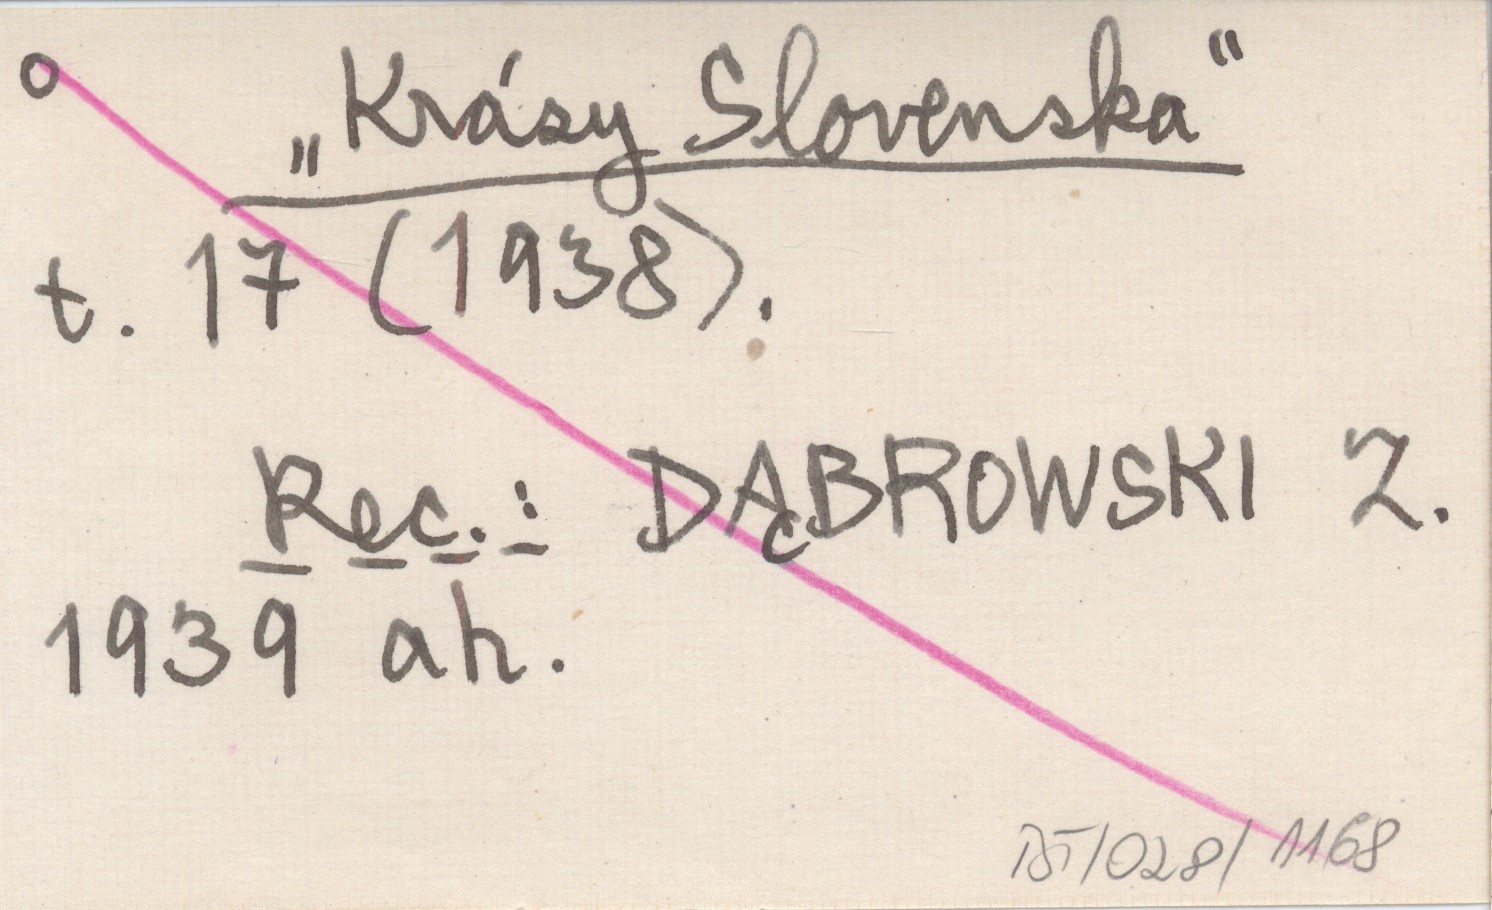 O
„Krásy Slovenska“
t. 17 (1938).
Rec.: DĄBROWSKI Z.
1939 ah.
BT/028/1168